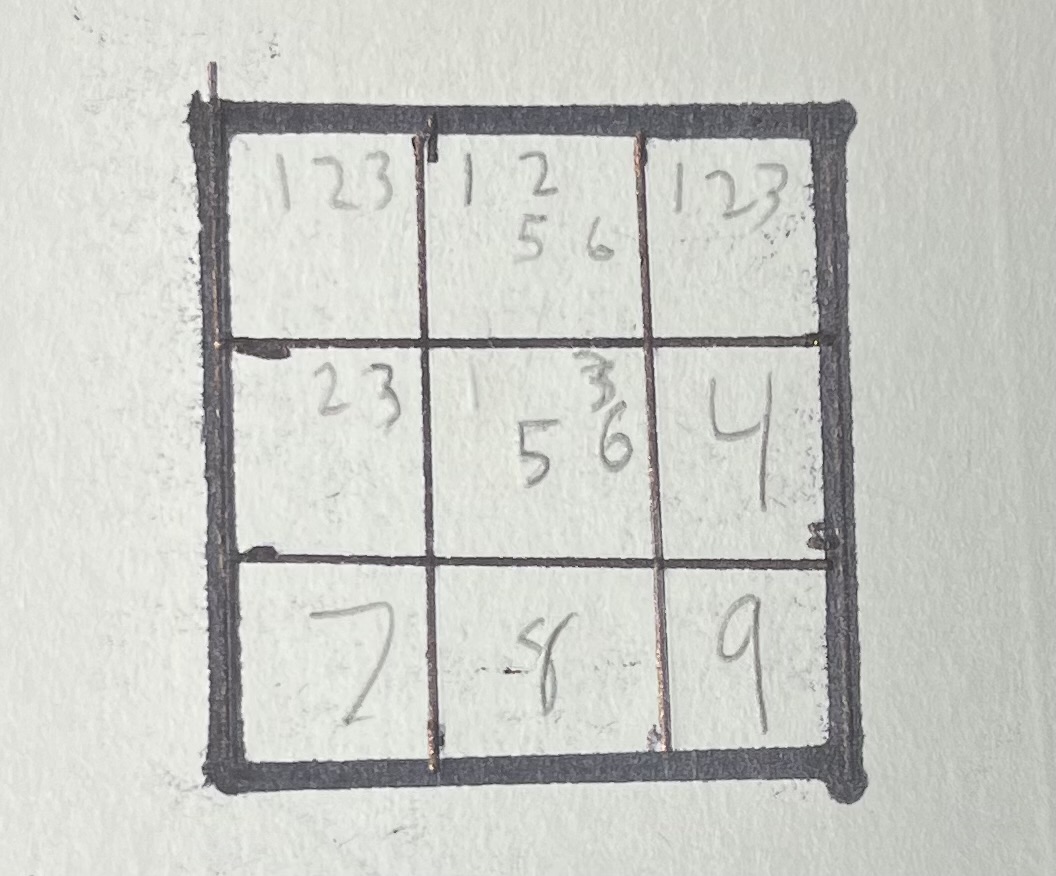 1 2 3 1 2 1 2 3
5 6
2 3 1 3
5 6 4
7 8 9